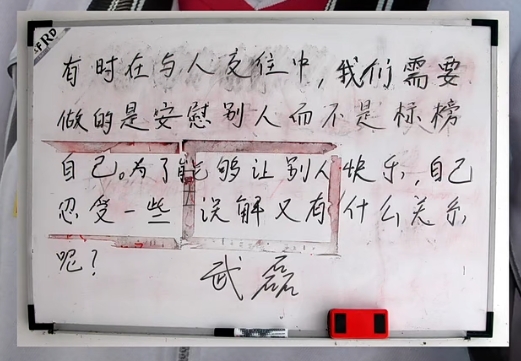 FRD
有时在与人交往中,我们需要
做的是安慰别人而不是标榜
自己。为了能够让别人快乐,自己
忍受一些 误解又有什么关系
呢?
武磊